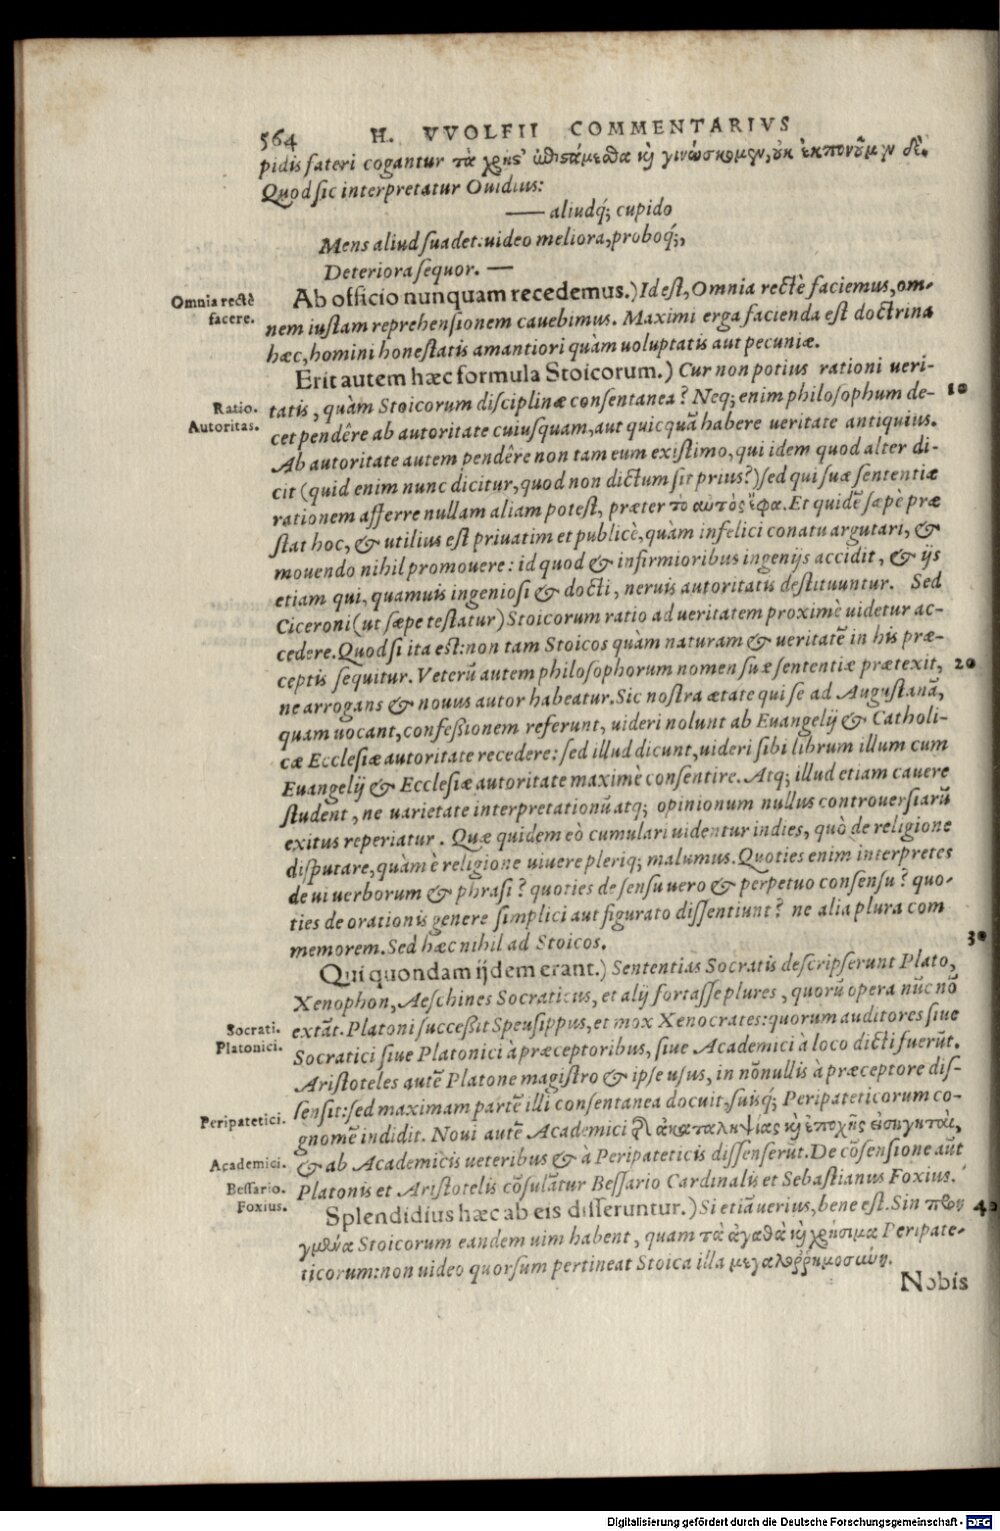 564 H. VVOLFII COMMENTARIVS
pidis fateri cogantur τὰ χρής' ἐπιστάμεσθα καὶ γινώσκομεν, οὐκ ἐκπονοῦμεν δὲ.
Quod sic interpretatur Ouidius:
—— aliudq́; cupido
Mens aliud suadet. uideo meliora, proboq́;,
Deteriora sequor. —
Omnia rectè
facere.
Ab officio nunquam recedemus.) Id est, Omnia rectè faciemus, om-
nem iustam reprehensionem cauebimus. Maximi erga facienda est doctrina
hæc, homini honestatis amantiori quàm uoluptatis aut pecuniæ.
Erit autem hæc formula Stoicorum.) Cur non potius rationi ueri-
Ratio.
Autoritas.
tatis, quàm Stoicorum disciplinæ consentanea? Neq; enim philosophum de- 10
cet pendêre ab autoritate cuiusquam, aut quicquã habere ueritate antiquius.
Ab autoritate autem pendêre non tam eum existimo, qui idem quod alter di-
cit (quid enim nunc dicitur, quod non dictum sit prius?) sed qui suæ sententiæ
rationem afferre nullam aliam potest, præter το αυτὸς ἔφα. Et quidẽ sæpè præ
stat hoc, & utilius est priuatim et publicè, quàm infelici conatu argutari, &
mouendo nihil promouere: id quod & infirmioribus ingenijs accidit, & ijs
etiam qui, quamuis ingeniosi & docti, neruis autoritatis destituuntur. Sed
Ciceroni (ut sæpe testatur) Stoicorum ratio ad ueritatem proximè uidetur ac-
cedere. Quod si ita est: non tam Stoicos quàm naturam & ueritatẽ in his præ-
ceptis sequitur. Veterũ autem philosophorum nomen suæ sententiæ prætexit, 20
ne arrogans & nouus autor habeatur. Sic nostra ætate qui se ad Augustanã,
quam uocant, confeßionem referunt, uideri nolunt ab Euangelij & Catholi-
cæ Ecclesiæ autoritate recedere: sed illud dicunt, uideri sibi librum illum cum
Euangelij & Ecclesiæ autoritate maximè consentire. Atq; illud etiam cauere
student, ne uarietate interpretationũ atq; opinionum nullus controuersiarũ
exitus reperiatur. Quæ quidem eò cumulari uidentur indies, quò de religione
disputare, quàm è religione uiuere pleriq; malumus. Quoties enim interpretes
de ui uerborum & phrasi? quoties de sensu uero & perpetuo consensu? quo-
ties de orationis genere simplici aut figurato dissentiunt? ne alia plura com
memorem. Sed hæc nihil ad Stoicos. 30
Qui quondam ijdem erant.) Sententias Socratis descripserunt Plato,
Xenophon, Aeschines Socraticus, et alij fortasse plures, quorũ opera nũc nõ
Socrati.
Platonici.
extãt. Platoni succeßit Speusippus, et mox Xenocrates: quorum auditores siue
Socratici siue Platonici à præceptoribus, siue Academici à loco dicti fuerũt.
Aristoteles autẽ Platone magistro & ipse usus, in nõnullis à præceptore dis-
Peripatetici.
sensit: sed maximam partẽ illi consentanea docuit, suisq́; Peripateticorum co-
gnomẽ indidit. Noui autẽ Academici οἱ ἀκαταληψίας καὶ ἐποχῆς εἰσηγηταὶ,
Academici.
& ab Academicis ueteribus & à Peripateticis dissenserũt. De cõsensione aũt
Bessario.
Foxius.
Platonis et Aristotelis cõsulãtur Bessario Cardinalis et Sebastianus Foxius.
Splendidius hæc ab eis disseruntur.) Si etiã uerius, bene est. Sin προη 40
γμένα Stoicorum eandem uim habent, quam τὰ ἀγαθὰ καὶ χρήσιμα Peripate-
ticorum: non uideo quorsum pertineat Stoica illa μεγαλορρημοσύνη.
Nobis
Digitalisierung gefördert durch die Deutsche Forschungsgemeinschaft - DFG